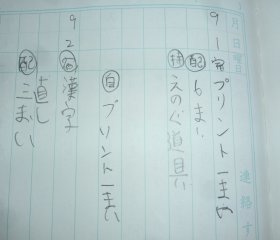 月日曜
連絡す
9 1 宿 プリント一まい
配 6まい
持 えのぐ道具
自 プリント一まい
9 2 宿 漢字
直し
配 三まい